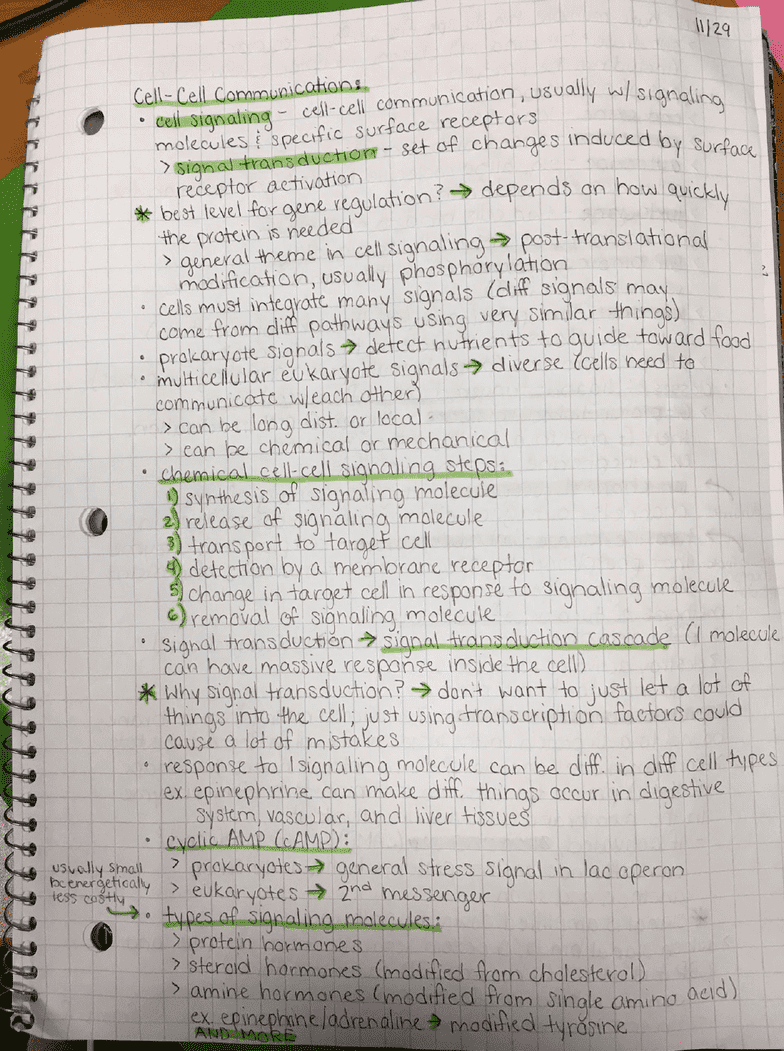 11/29
Cell-Cell Communication:
• cell signaling - cell-cell communication, usually w/ signaling
molecules & specific surface receptors
> signal transduction - set of changes induced by surface
receptor activation
* best level for gene regulation? → depends on how quickly
the protein is needed
> general theme in cell signaling → post-translational
modification, usually phosphorylation
• cells must integrate many signals (diff signals may
come from diff pathways using very similar things)
• prokaryote signals → detect nutrients to guide toward food
• multicellular eukaryote signals → diverse (cells need to
communicate w/each other)
> can be long dist. or local
> can be chemical or mechanical
• chemical cell-cell signaling steps:
1) synthesis of signaling molecule
2) release of signaling molecule
3) transport to target cell
4) detection by a membrane receptor
5) change in target cell in response to signaling molecule
6) removal of signaling molecule
• signal transduction → signal transduction cascade (1 molecule
can have massive response inside the cell)
* Why signal transduction? → don't want to just let a lot of
things into the cell; just using transcription factors could
cause a lot of mistakes
• response to 1 signaling molecule can be diff. in diff cell types
ex. epinephrine can make diff. things occur in digestive
system, vascular, and liver tissues
• cyclic AMP (cAMP):
> prokaryotes → general stress signal in lac operon
> eukaryotes → 2nd messenger
usually small
bc energetically
less costly →
• types of signaling molecules:
> protein hormones
> steroid hormones (modified from cholesterol)
> amine hormones (modified from single amino acid)
ex. epinephrine/adrenaline → modified tyrosine
AND MORE